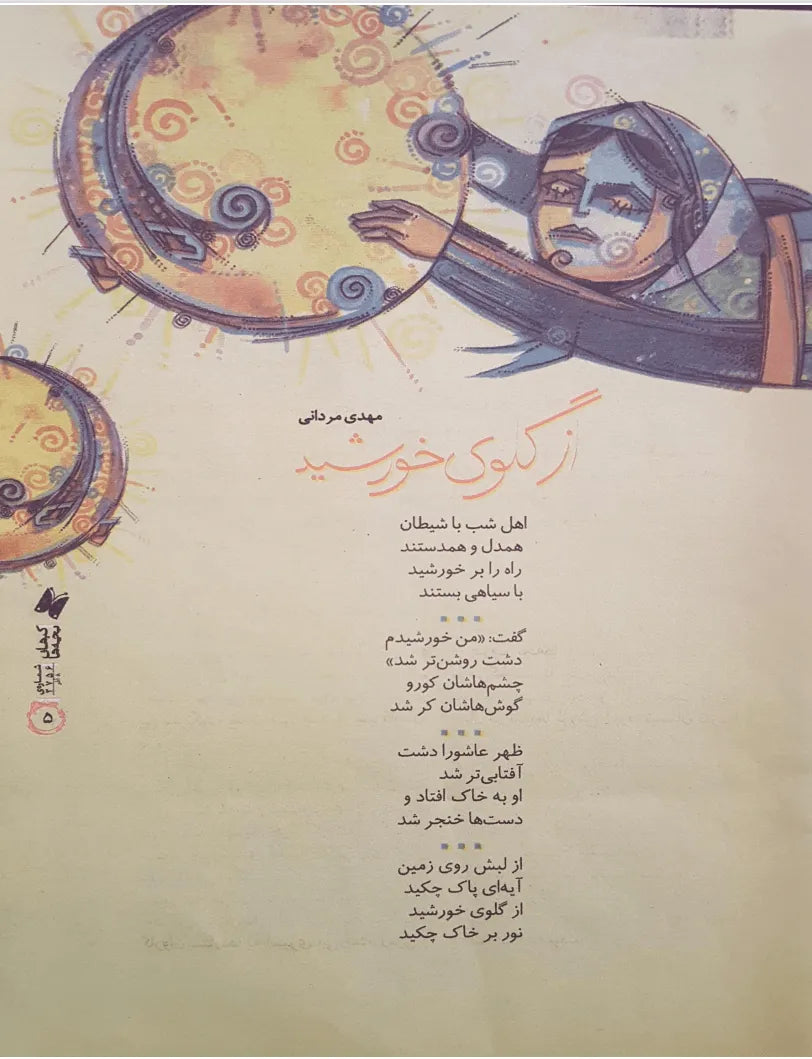 مهدی مردانی
از گلوی خورشید
اهل شب با شیطان
همدل و همدستند
راه را بر خورشید
با سیاهی بستند
گفت: «من خورشیدم
دشت روشن‌تر شد»
چشم‌هاشان کورو
گوش‌هاشان کر شد
ظهر عاشورا دشت
آفتابی‌تر شد
او به خاک افتاد و
دست‌ها خنجر شد
از لبش روی زمین
آیه‌ای پاک چکید
از گلوی خورشید
نور بر خاک چکید
کیهان
بچه‌ها
شماره‌ی
۲۷۵۶
۵